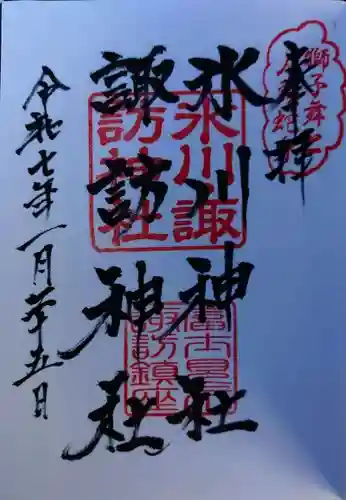 奉拝
獅子舞
氷川神社
諏訪神社
氷川諏
訪神社
諏訪鎮座
令和七年一月廿五日